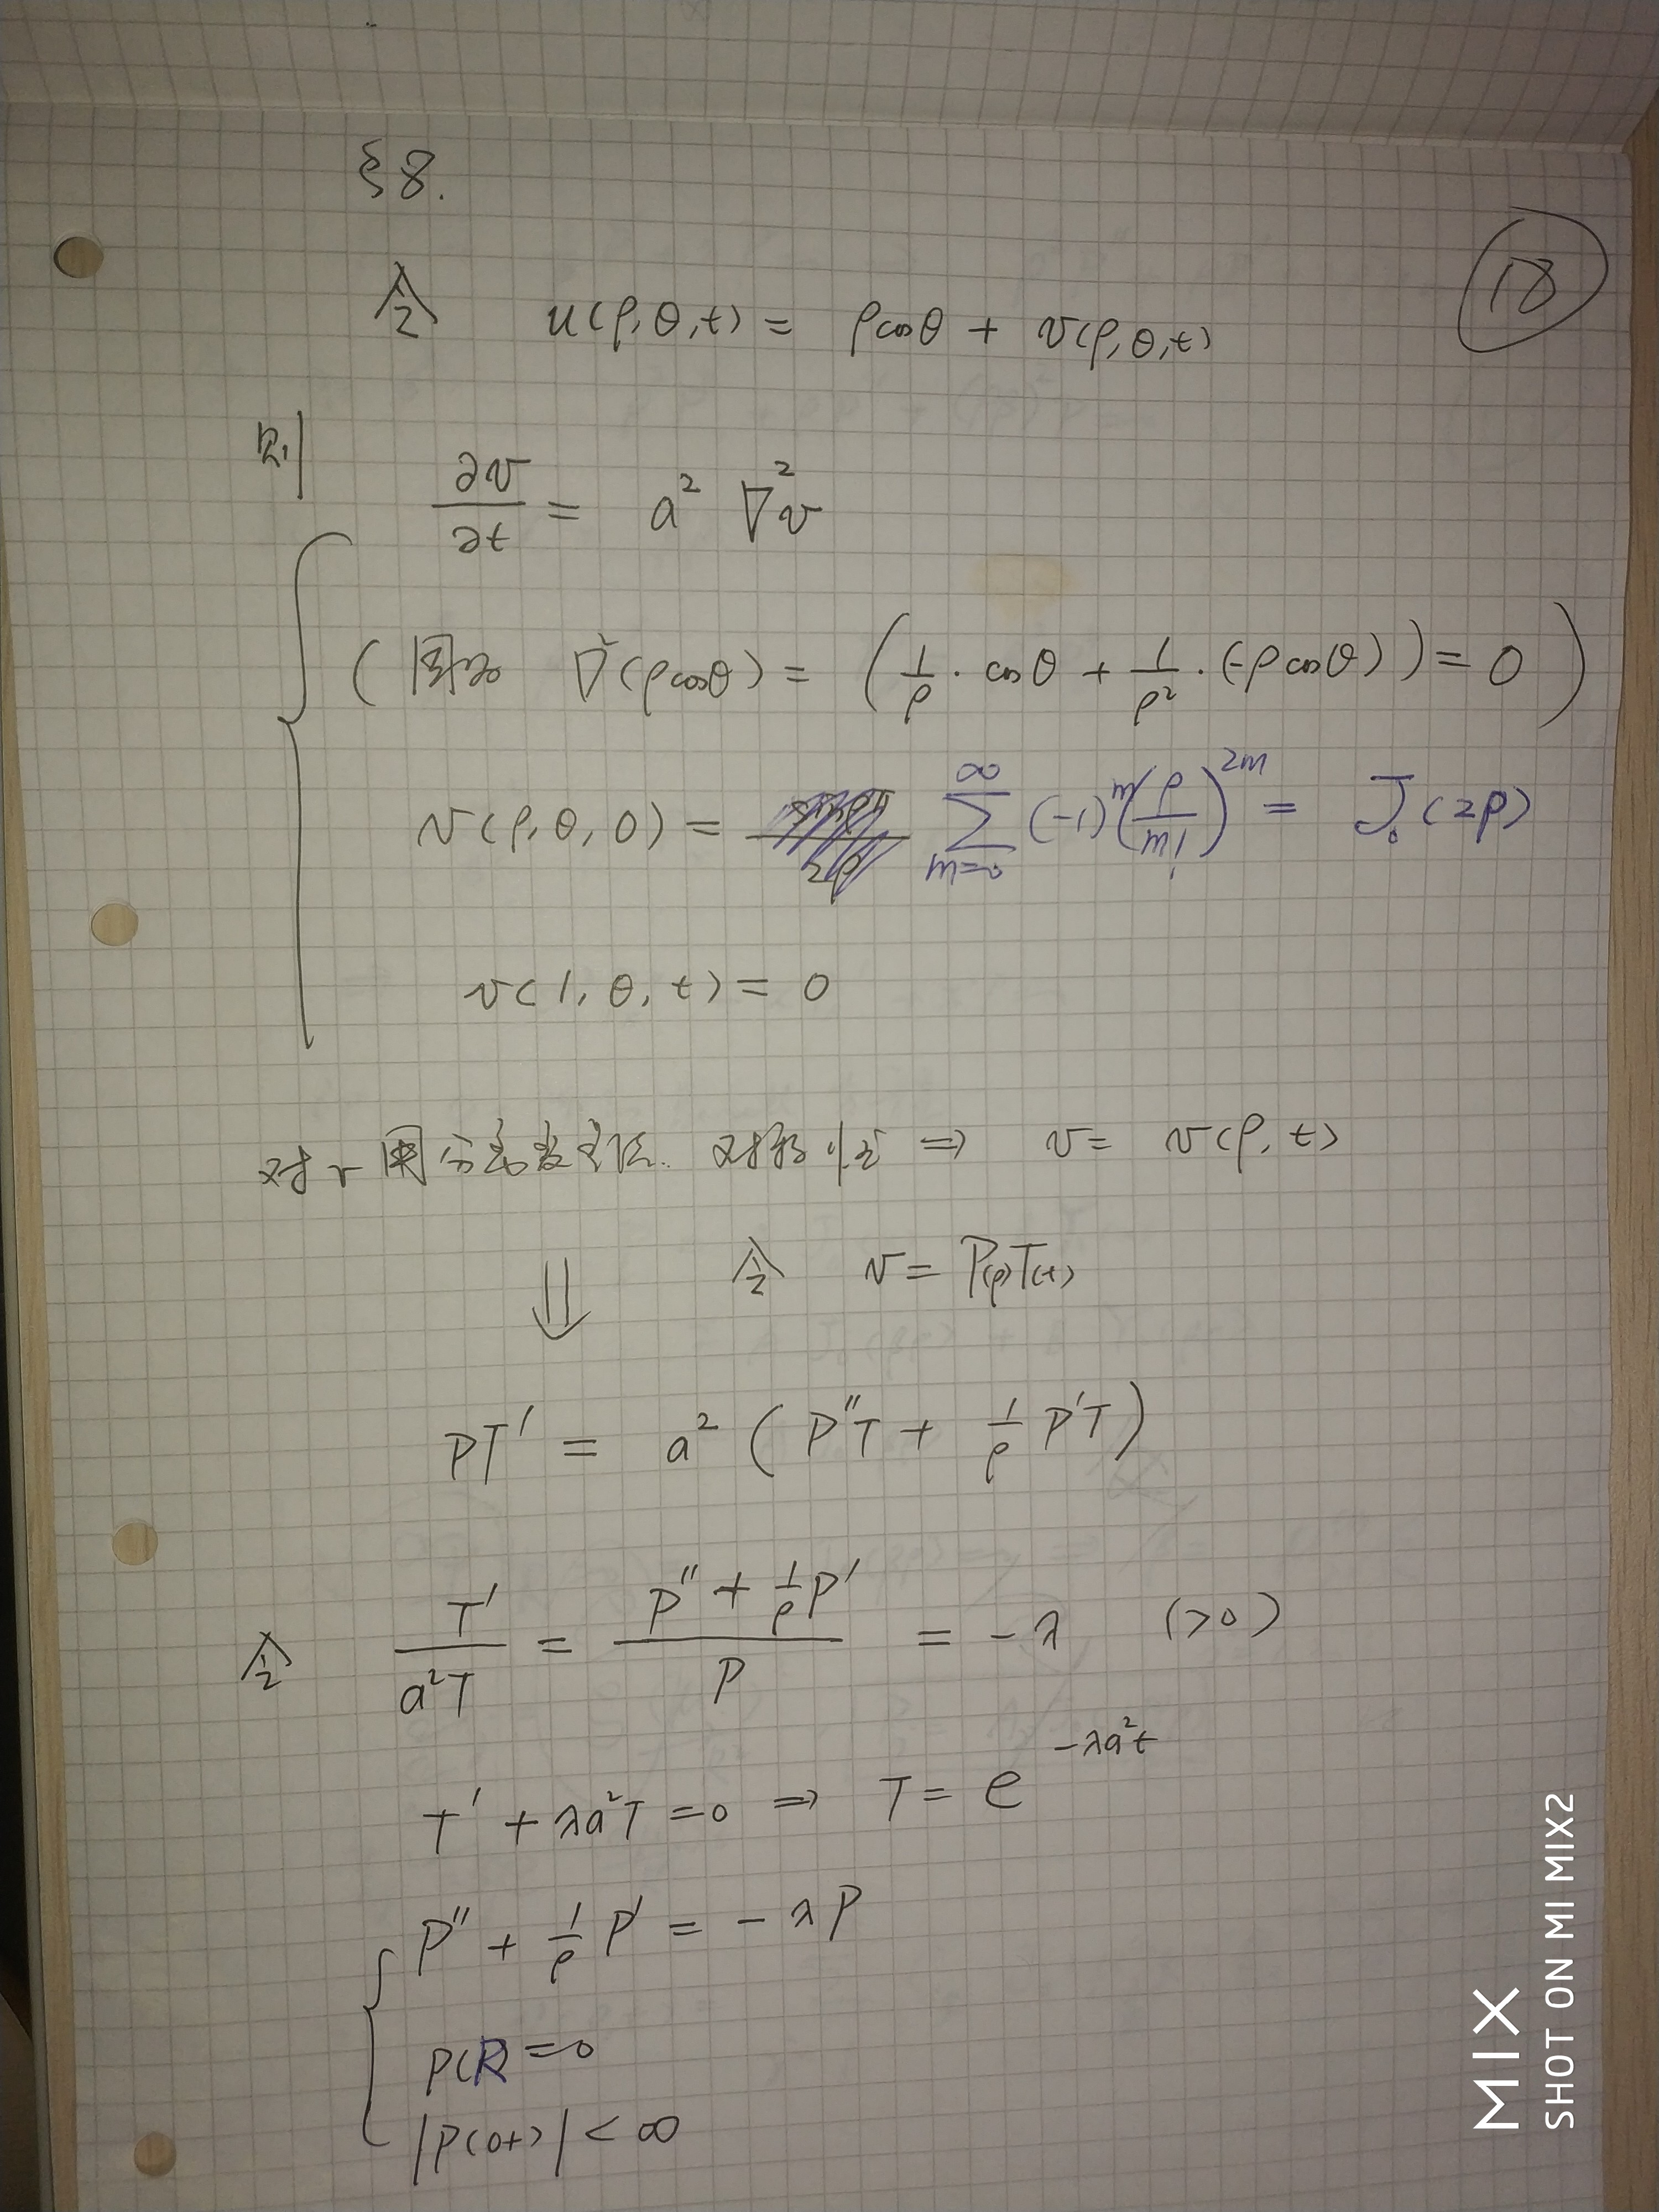 §8.
18
令 u(ρ,θ,t) = ρcosθ + v(ρ,θ,t)
则
∂v/∂t = a² ∇²v
(因为 ∇²(ρcosθ) = (1/ρ · cosθ + 1/ρ² · (-ρcosθ)) = 0)
v(ρ,θ,0) = ∑_{m=0}^{∞} (-1)^m (ρ/m!)^{2m} = J₀(2ρ)
v(1,θ,t) = 0
对v用分离变量法. 对称性 ⇒ v = v(ρ,t)
⇓ 令 v = P(ρ)T(t)
PT' = a² (P''T + 1/ρ P'T)
令 T'/(a²T) = (P'' + 1/ρ P')/P = -λ (>0)
T' + λa²T = 0 ⇒ T = e^{-λa²t}
P'' + 1/ρ P' = -λP
P(R = 0
|P(0+)| < ∞
MIX
SHOT ON MI MIX2